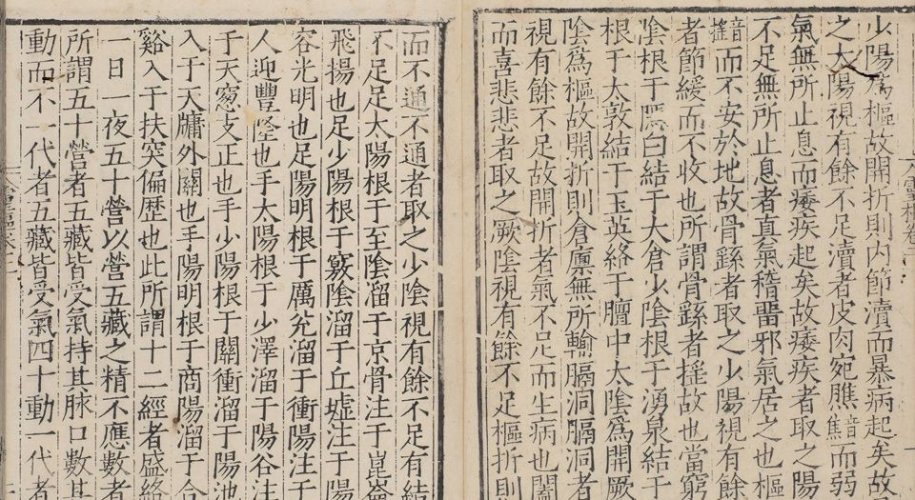 少陽爲樞故開折則内節瀆而暴病起矣故
之太陽視有餘不足瀆者皮肉宛膲音焦而弱
氣無所止息而痿疾起矣故痿疾者取之陽
不足無所止息者真氣稽畱邪氣居之也樞
音搖而不安於地故骨繇者取之少陽視有餘
者節緩而不收也所謂骨繇者搖故也當窮
陰根于隱白結于大倉少陰根于湧泉結于
根于大敦結于玉英絡于膻中太陰爲開厥
陰爲樞故開折則倉廩無所輸膈洞膈洞者
視有餘不足故開折者氣不足而生病也闔
而喜悲悲者取之厥陰視有餘不足樞折則
而不通不通者取之少陰視有餘不足有結
不足足太陽根于至陰溜于京骨注于崑崙
飛揚也足少陽根于竅陰溜于丘墟注于陽
容光明也足陽明根于厲兌溜于衝陽注于
人迎豐隆也手太陽根于少澤溜于陽谷注
于天窻支正也手少陽根于關衝溜于陽池
入于天牖外關也手陽明根于商陽溜于合
谿入于扶突偏歷也此所謂十二經者盛絡
一日一夜五十營以營五藏之精不應數者
所謂五十營者五藏皆受氣持其脉口數其
動而不一代者五藏皆受氣四十動一代者